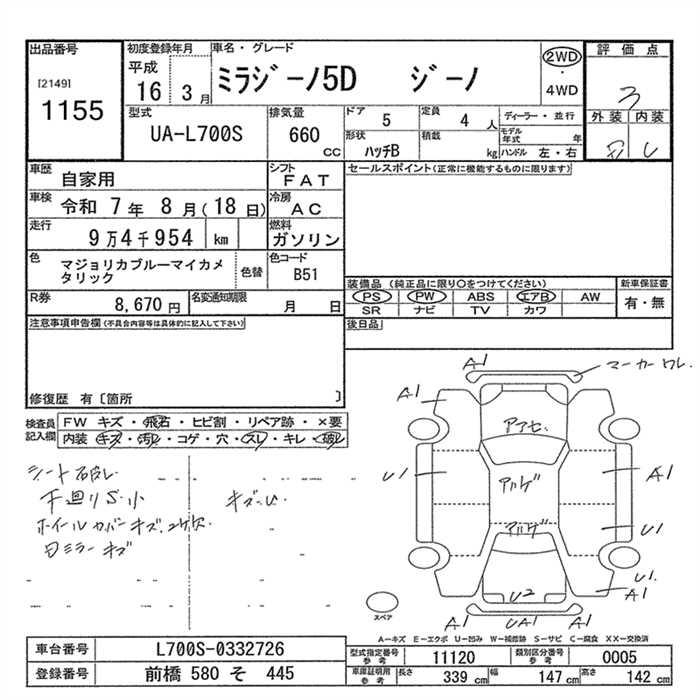 出品番号
[2149]
1155
初度登録年月
平成
16 3月
車名・グレード
ミラジーノ5D ジーノ
2WD
・
4WD
評価点
3
外装 内装
型式
UA-L700S
排気量
660
cc
ドア
5
定員
4 人
形状
ハッチB
積載
kg
ディーラー・並行
モデル年式 年
ハンドル 左・右
車歴
自家用
シフト
FAT
車検
令和 7年 8月(18日)
冷房
AC
走行
9万4千954 km
燃料
ガソリン
色
マジョリカブルーマイカメ
タリック
色替
色コード
B51
R券
8,670 円
名変通知期限
月 日
セールスポイント(正常に機能するものに限ります)
装備品 (純正品に限り○をつけてください)
PS PW ABS エアB AW
SR ナビ TV カワ
新車保証書
有・無
後日品
注意事項申告欄(不具合内容等は具体的に記入して下さい)
修復歴 有〔箇所 〕
検査員
記入欄
FW キズ・飛石・ヒビ割・リペア跡・×要
内装 キズ・汚レ・コゲ・穴・スレ・キレ・破レ
シート破レ
下廻りS・小
キズ・U
ホイールカバーキズ、2ケ欠
ミラーキズ
A1
マーカーワレ
A1
アアセ
U1
アルゲ
A1
アルゲ
U1
U1
A1
U2
A1
UA1
A1
スペア
A−キズ E−エクボ U−凹み W−補修跡 S−サビ C−腐食 XX−交換済
車台番号
L700S-0332726
登録番号
前橋 580 そ 445
型式指定番号
参考
11120
類別区分番号
参考
0005
車庫証明用
参考
長さ
339 cm
幅
147 cm
高さ
142 cm